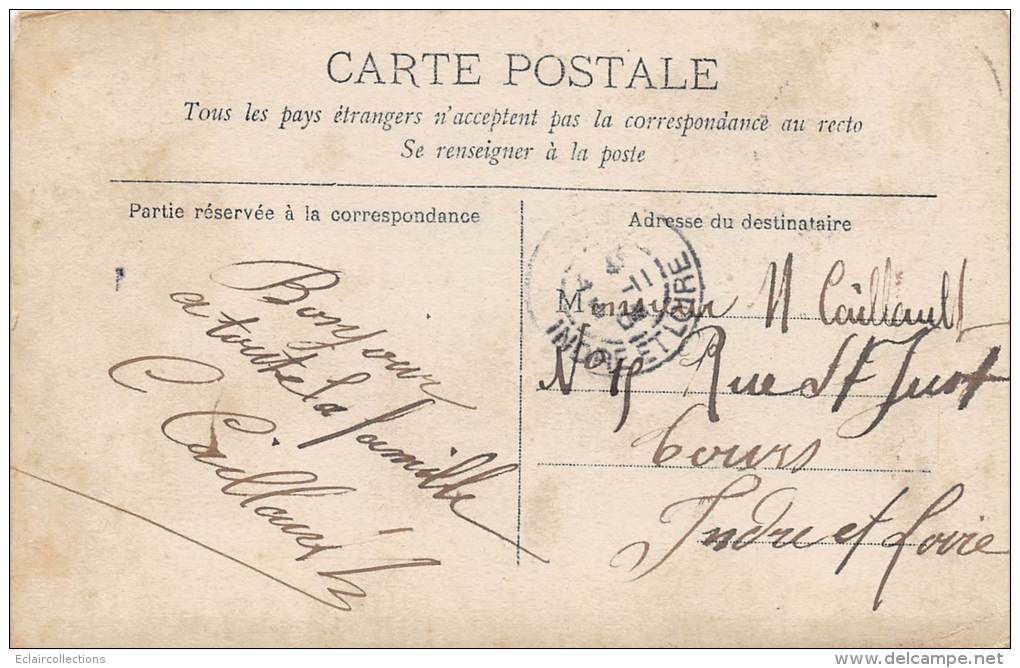 CARTE POSTALE
Tous les pays étrangers n'acceptent pas la correspondance au recto
Se renseigner à la poste
Partie réservée à la correspondance
Bonjour
a toute la famille
Caillault
Adresse du destinataire
Monsieur Caillault
N° 15 Rue St Just
Tours
Indre et Loire
INDRE ET LOIRE
Eclaircollections
delcampe.net